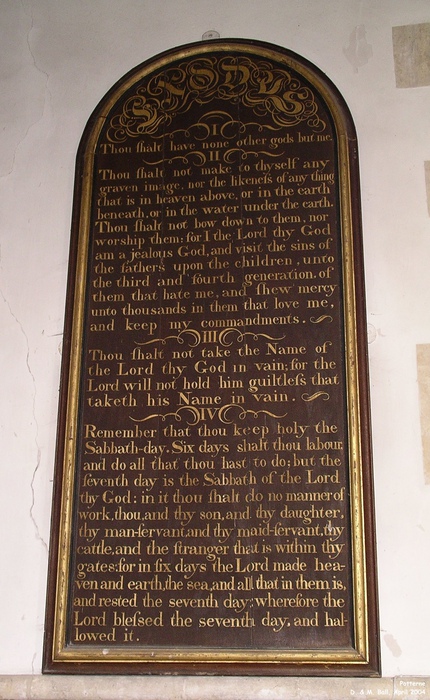 EXODUS
I
Thou ſhalt have none other gods but me.
II
Thou ſhalt not make to thyself any
graven image, nor the likeneſs of any thing
that is in heaven above, or in the earth
beneath, or in the water under the earth.
Thou ſhalt not bow down to them, nor
worship them: for I the Lord thy God
am a jealous God, and visit the sins of
the fathers upon the children, unto
the third and fourth generation, of
them that hate me, and ſhew mercy
unto thousands in them that love me,
and keep my commandments.
III
Thou ſhalt not take the Name of
the Lord thy God in vain: for the
Lord will not hold him guiltleſs that
taketh his Name in vain.
IV
Remember that thou keep holy the
Sabbath-day. Six days shalt thou labour,
and do all that thou hast to do: but the
ſeventh day is the Sabbath of the Lord
thy God: in it thou ſhalt do no manner of
work, thou, and thy son, and thy daughter,
thy man-ſervant, and thy maid-ſervant, thy
cattle, and the ſtranger that is within thy
gates: for in ſix days the Lord made hea-
ven and earth, the sea, and all that in them is,
and rested the seventh day; wherefore the
Lord bleſsed the seventh day, and hal-
lowed it.
Patterne
D. & M. Ball, April 2004